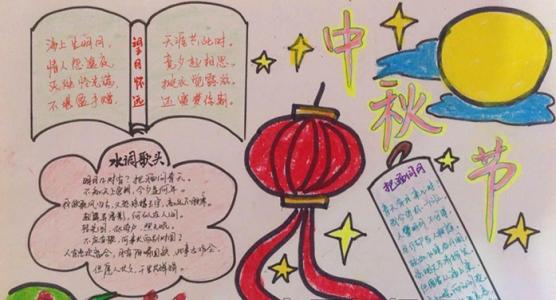 中秋节
望月怀远
海上生明月，
情人怨遥夜，
灭烛怜光满，
不堪盈手赠，
天涯共此时。
竟夕起相思。
披衣觉露滋。
还寝梦佳期。
水调歌头
明月几时有？把酒问青天。
不知天上宫阙，今夕是何年。
我欲乘风归去，又恐琼楼玉宇，高处不胜寒。
起舞弄清影，何似在人间。
转朱阁，低绮户，照无眠。
不应有恨，何事长向别时圆？
人有悲欢离合，月有阴晴圆缺，此事古难全。
但愿人长久，千里共婵娟。
把酒问月
青天有月来几时，
我今停杯一问之。
人攀明月不可得，
月行却与人相随。